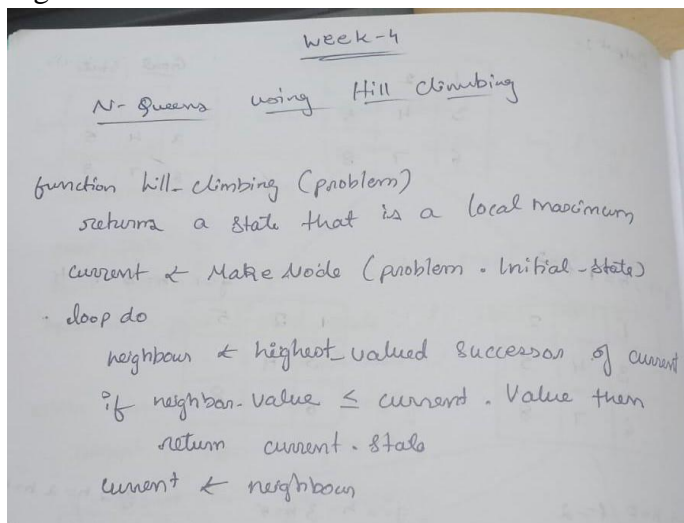 Week-4
N-Queens using Hill Climbing
function hill-climbing (problem)
returns a state that is a local maximum
current ← Make Node (problem. Initial-state)
loop do
neighbour ← highest_valued successor of current
if neighbor.value ≤ current. Value then
return current. State
current ← neighbour